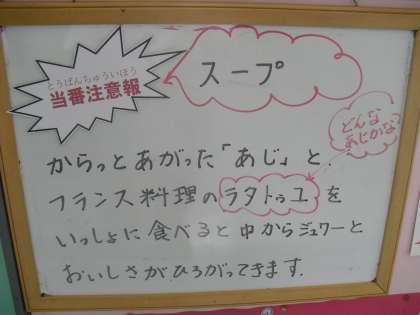 とうばんちゅういほう
当番注意報
スープ
どんな
あじかな?
からっとあがった「あじ」と、
フランス料理のラタトゥユを
いっしょに食べると中からジュワーと
おいしさがひろがってきます。